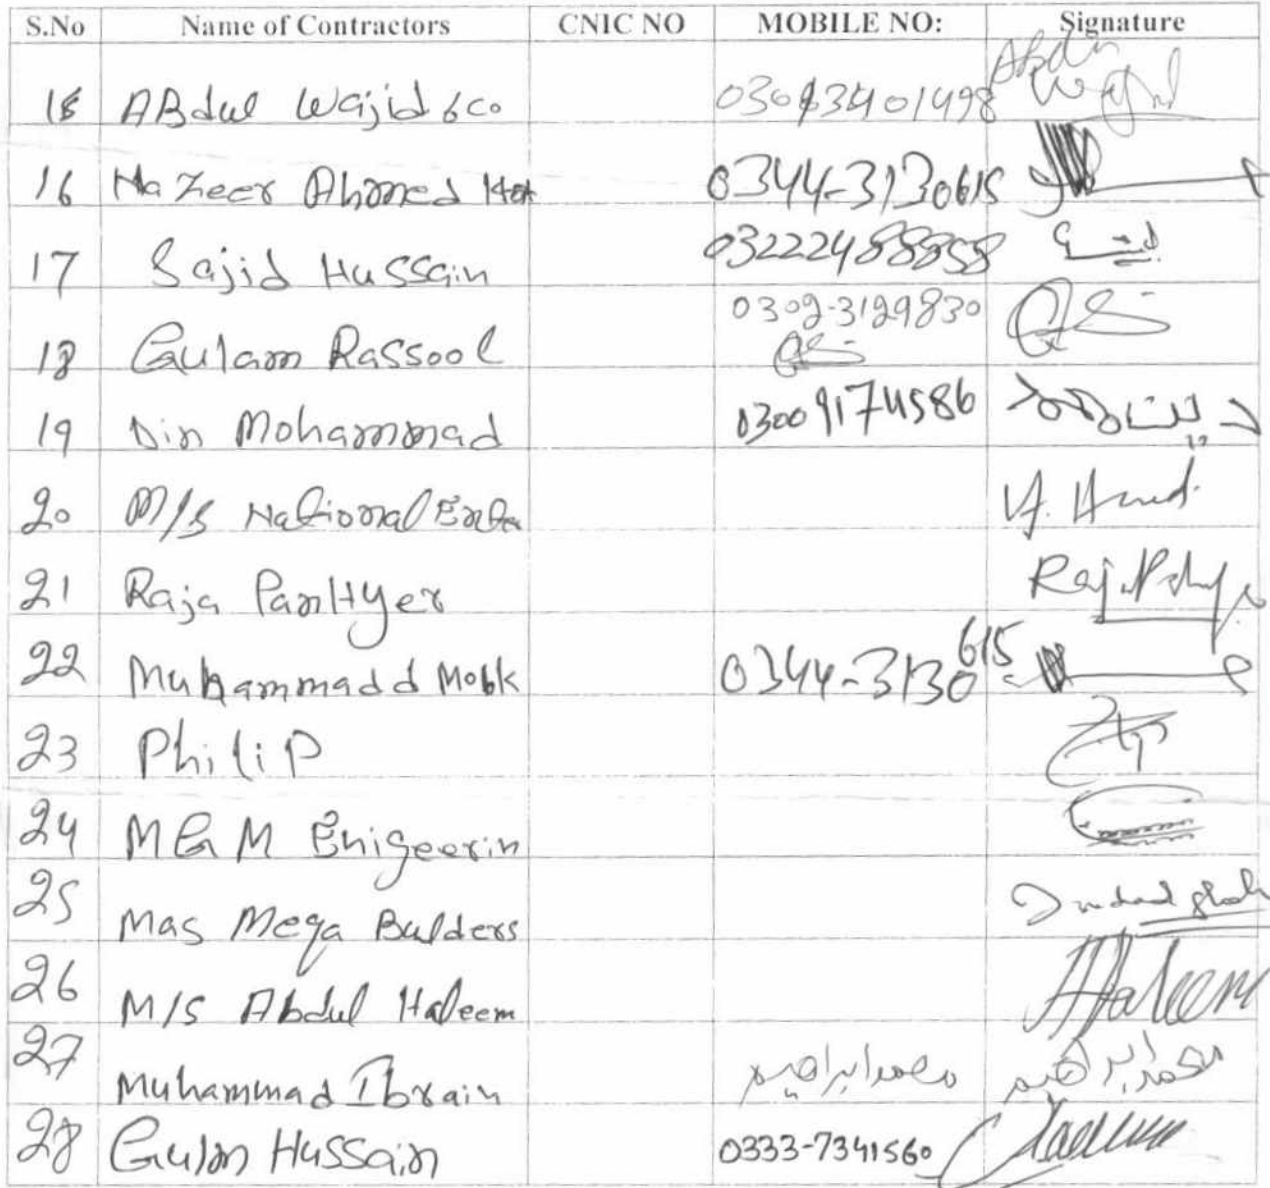 S.No Name of Contractors CNIC NO MOBILE NO: Signature
15 ABdul Wajid & Co Abdu Wajid
16 Nazeer Ahmed 0344-3130615
17 Sajid Hussain 03222488858
18 Gulam Rassool 0309-3129830
19 Din Mohammad 03009174586 دین محمد
20 M/S National Enta
21 Raja PanHyer
22 Muhammadd 0344-3130615
23 Philip
24 M G M Enigeerin
25 Mas Mega Bulders
26 M/S Abdul Haleem AHaleem
27 Muhammad Ibrain محمد ابراهیم محمد ابراهیم
28 Gulm Hussain 0333-7341560